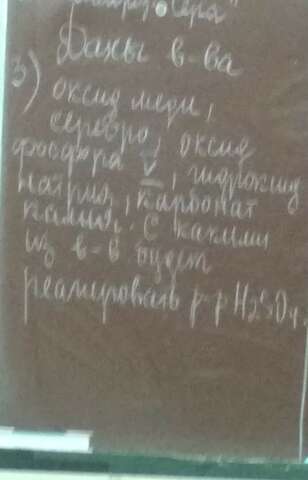 "Сера"
Даны в-ва
3) оксид меди,
серебро, оксид
фосфора V, гидроксид
натрия, карбонат
калия. С какими
из в-в будет
реагировать р-р H₂SO₄.